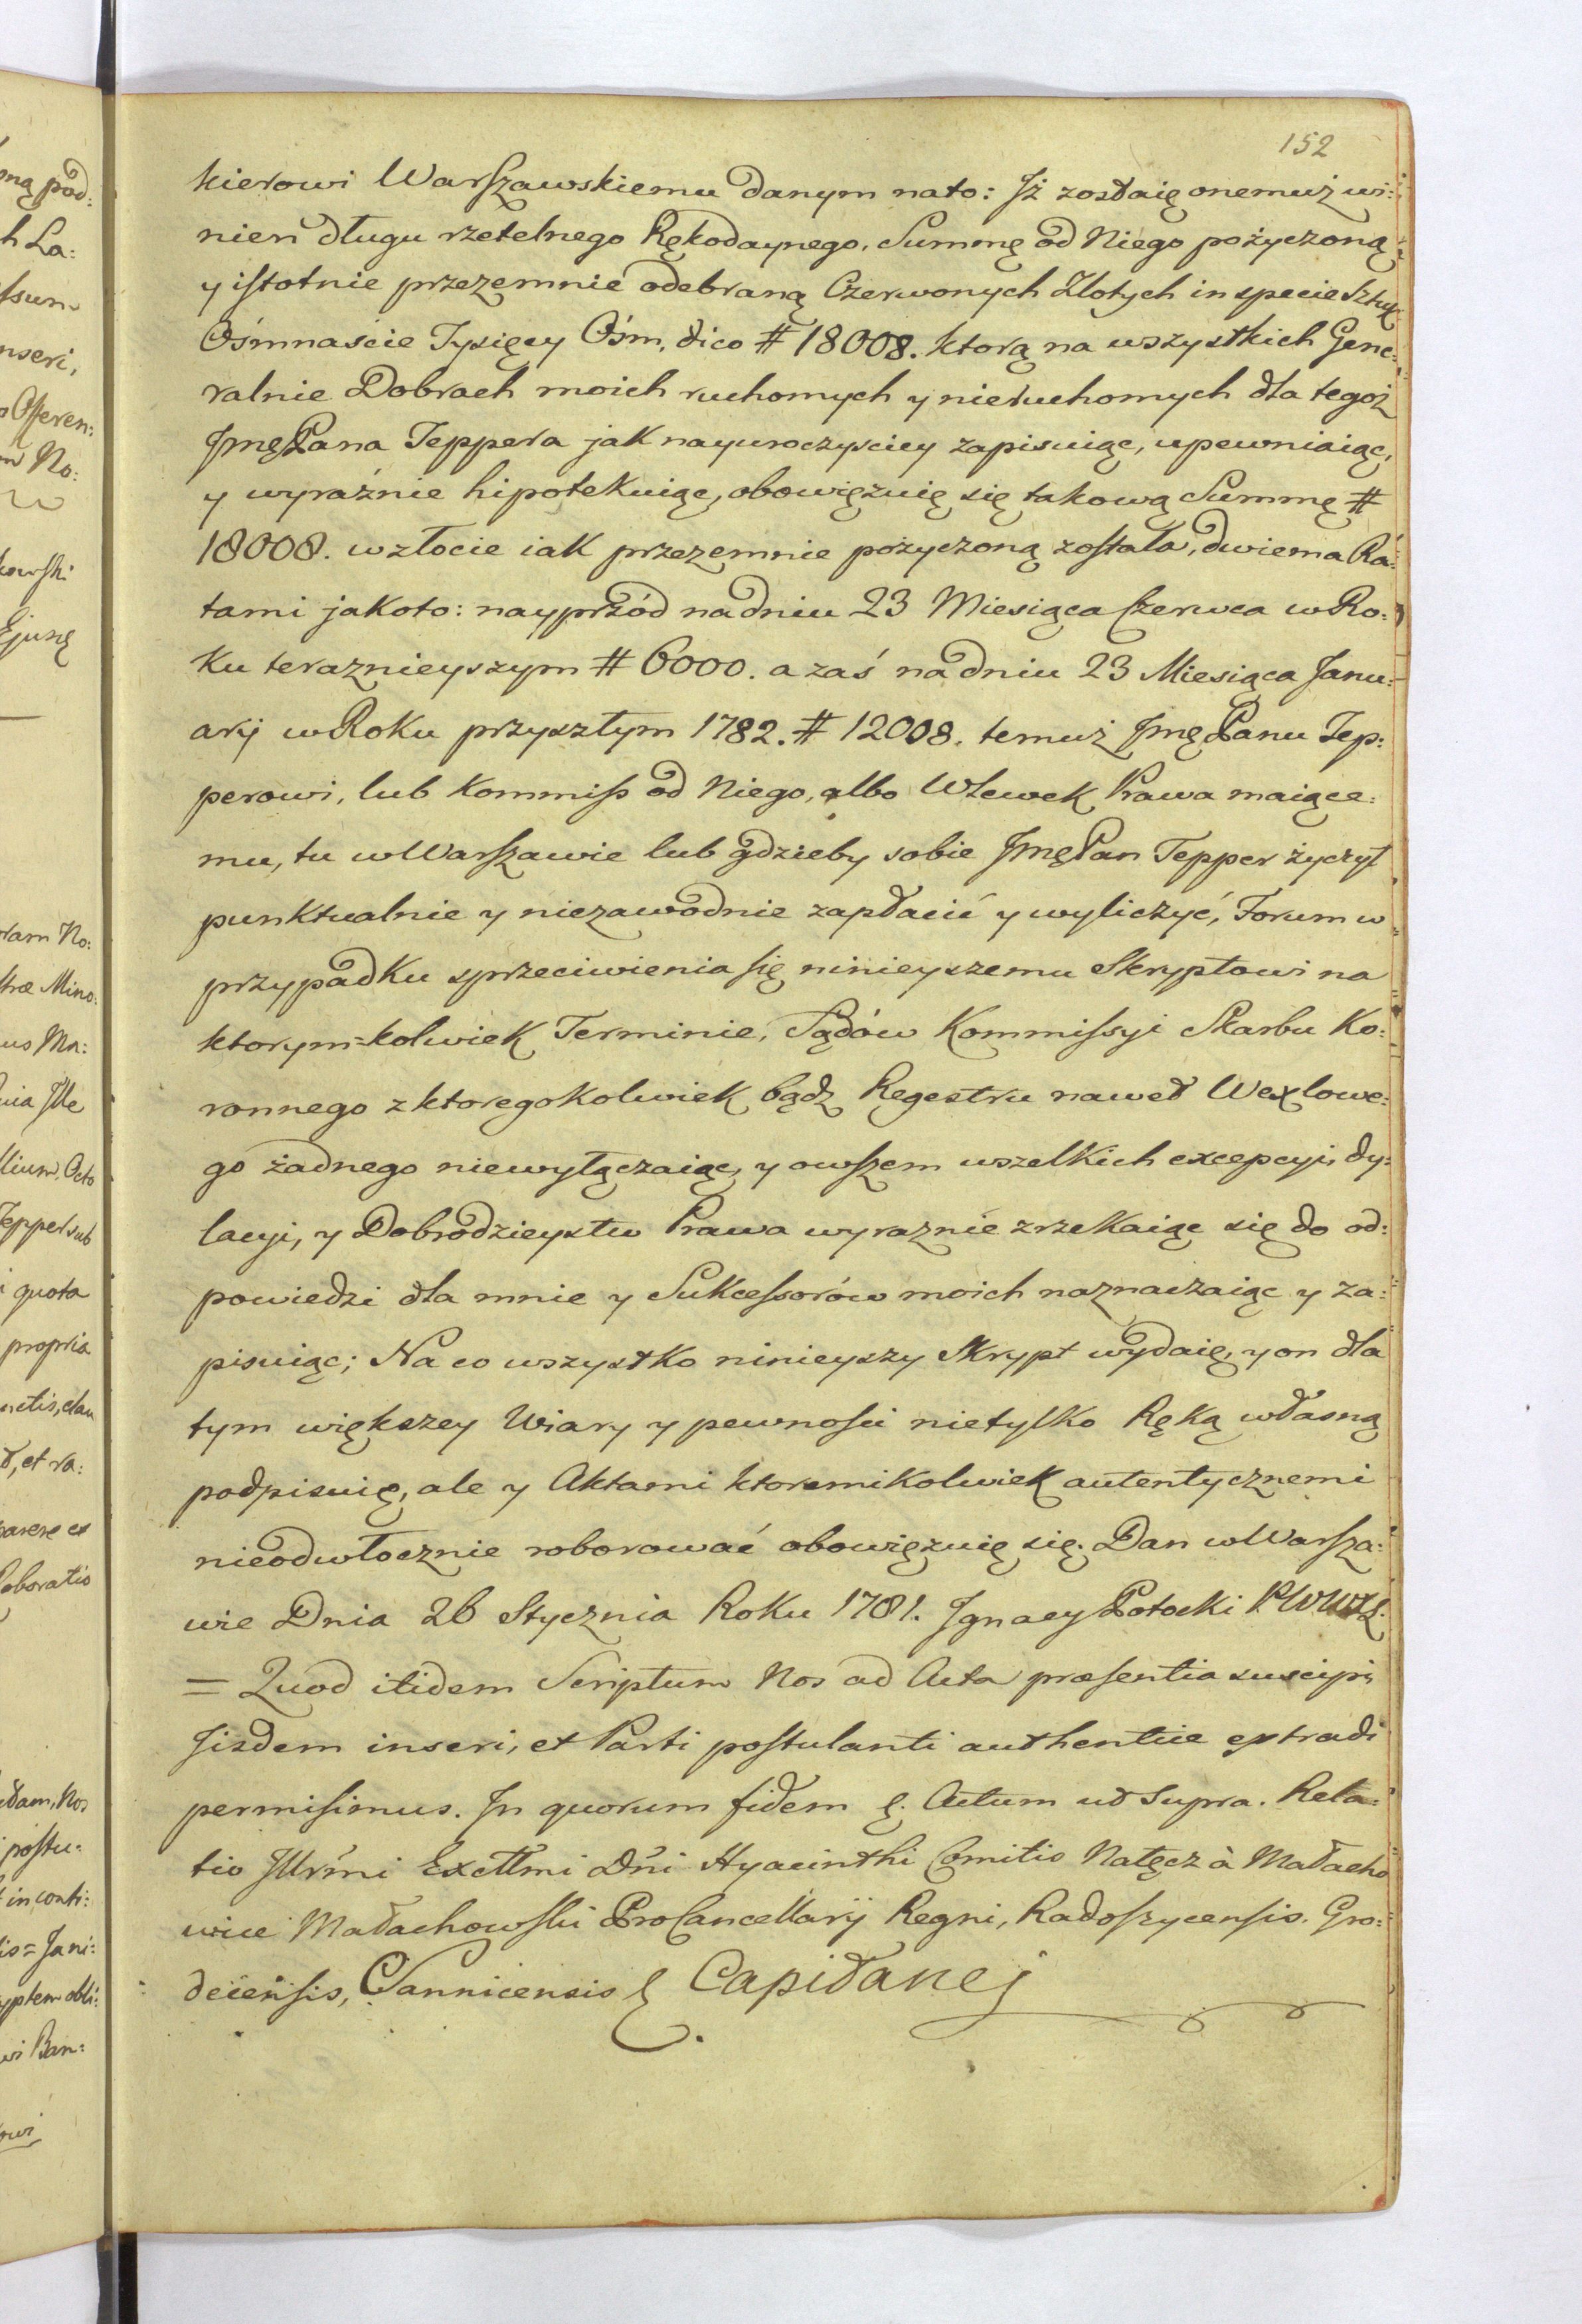 152
kierowi Warszawskiemu danym nato: Jż zostaię onemuż wi:
nien długu rzetelnego Rękodaynego, Summę od Niego pożyczoną
y istotnie przezemnie odebraną Czerwonych Złotych in specie Sztuk
Ośmnaście Tysięcy Ośm, dico # 18008. ktorą na wszystkich Gene:
ralnie Dobrach moich ruchomych y nieruchomych dla tegoż
JmęPana Teppera jak nayuroczyściey zapisuiąc, upewniaiąc,
y wyraźnie hipotekuiąc, obowięzuię się takową Summę #
18008. wzłocie iak przezemnie pożyczoną została, dwiema Ra:
tami jakoto: nayprzód nadniu 23 Miesiąca Czerwca w Ro:
ku teraznieyszym # 6000. a zaś na dniu 23 Miesiąca Janu:
arij w Roku przyszłym 1782. # 12008. temuż Jmę Panu Tep:
perowi, lub kommiss od Niego, albo Wlewek Prawa maiące:
mu, tu w Warszawie lub gdzieby sobie JmęPan Tepper życzył
punktualnie y niezawodnie zapłacić y wyliczyć, Forum w
przypadku sprzeciwienia się ninieyszemu Skryptowi na
ktorym=kolwiek Terminie, Sądów Kommissyi Skarbu Ko:
ronnego z ktoregokolwiek bądz Regestru nawet Wexlowe:
go żadnego niewyłączaiąc, y owszem wszelkich excepcyi, dy:
lacyi, y Dobrodzieystw Prawa wyraznie zrzekaiąc się do od:
powiedzi dla mnie y Sukcessorów moich naznaczaiąc y za:
pisuiąc; Na co wszystko ninieyszy Skrypt wydaię, y on dla
tym większey Wiary y pewności nietylko Ręką własną
podpisuię, ale y Aktami ktoremikolwiek autentycznemi
nieodwłocznie roborować obowięzuię się. Dan w Warsza:
wie Dnia 26 Stycznia Roku 1781. Jgnacy Potocki
= Quod itidem Scriptum Nos ad Acta præsentia suscipi,
Jisdem inseri, et Parti postulanti authentice extradi
permisimus. Jn quorum fidem &. Actum ut supra. Rela:
tio Jllr̃mi Excttmi Dñi Hyacinthi Comitis Natęcz à Małacho
wice Małachowski ProCancellarij Regni, Radoszycensis. Gro:
deiensis, Sannicensis & Capitanej